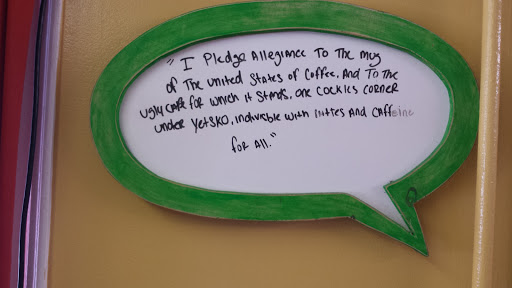 "I Pledge Allegiance To The mug
of The United States of Coffee, And To The
ugly cafe for which it stands, one cockles corner
under Yetsko, indivisible with
And Caffeine
for All."